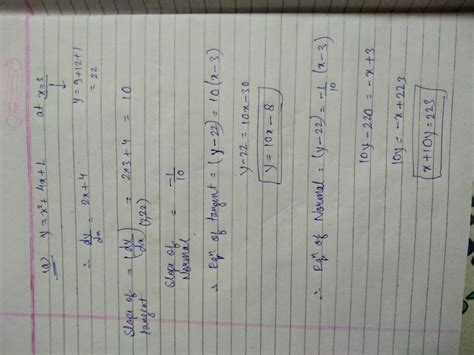 (a) y = x² + 4x + 1 at x = 3
↓
∴ dy/dx = 2x + 4
y = 9 + 12 + 1
= 22
Slope of tangent = (dy/dx)(3,22) = 2×3 + 4 = 10
Slope of Normal = -1/10
∴ Eqⁿ of tangent = (y-22) = 10(x-3)
y-22 = 10x-30
y = 10x-8
∴ Eqⁿ of Normal = (y-22) = -1/10 (x-3)
10y-220 = -x+3
10y = -x + 223
x+10y = 223